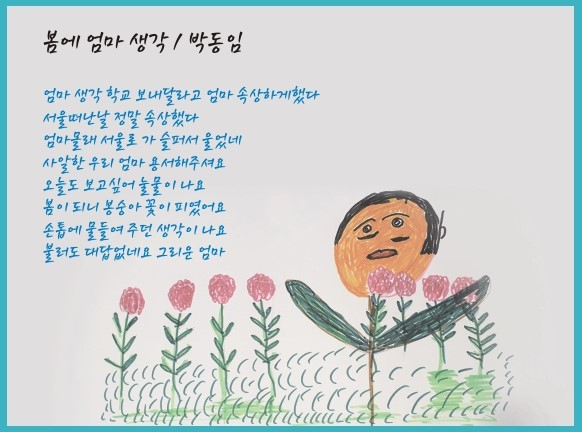 봄에 엄마 생각 / 박동임
엄마 생각 학교 보내달라고 엄마 속상하게했다
서울떠난날 정말 속상했다
엄마몰래 서울로 가 슬퍼서 울었네
사알한 우리 엄마 용서해주셔요
오늘도 보고싶어 눌물이 나요
봄이 되니 봉숭아 꽃이 피였어요
손톱에 물들여 주던 생각이 나요
불러도 대답없네요 그리운 엄마